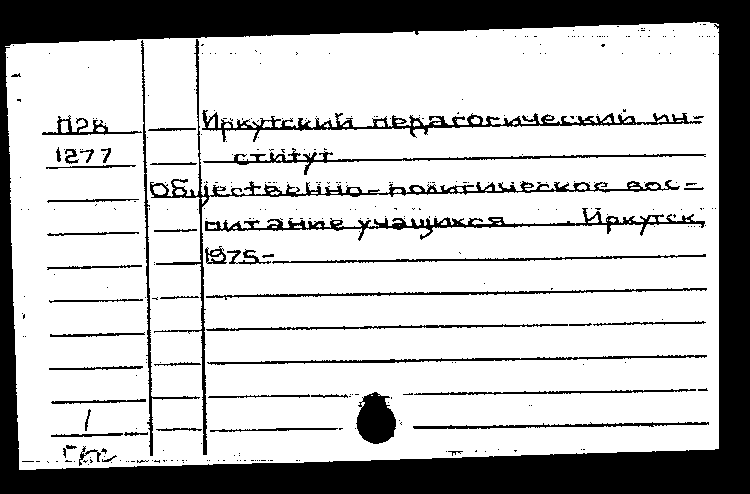 П28 Иркутский педагогический ин-
1277 ститут
Общественно-политическое вос-
питание учащихся . Иркутск,
1975-
1